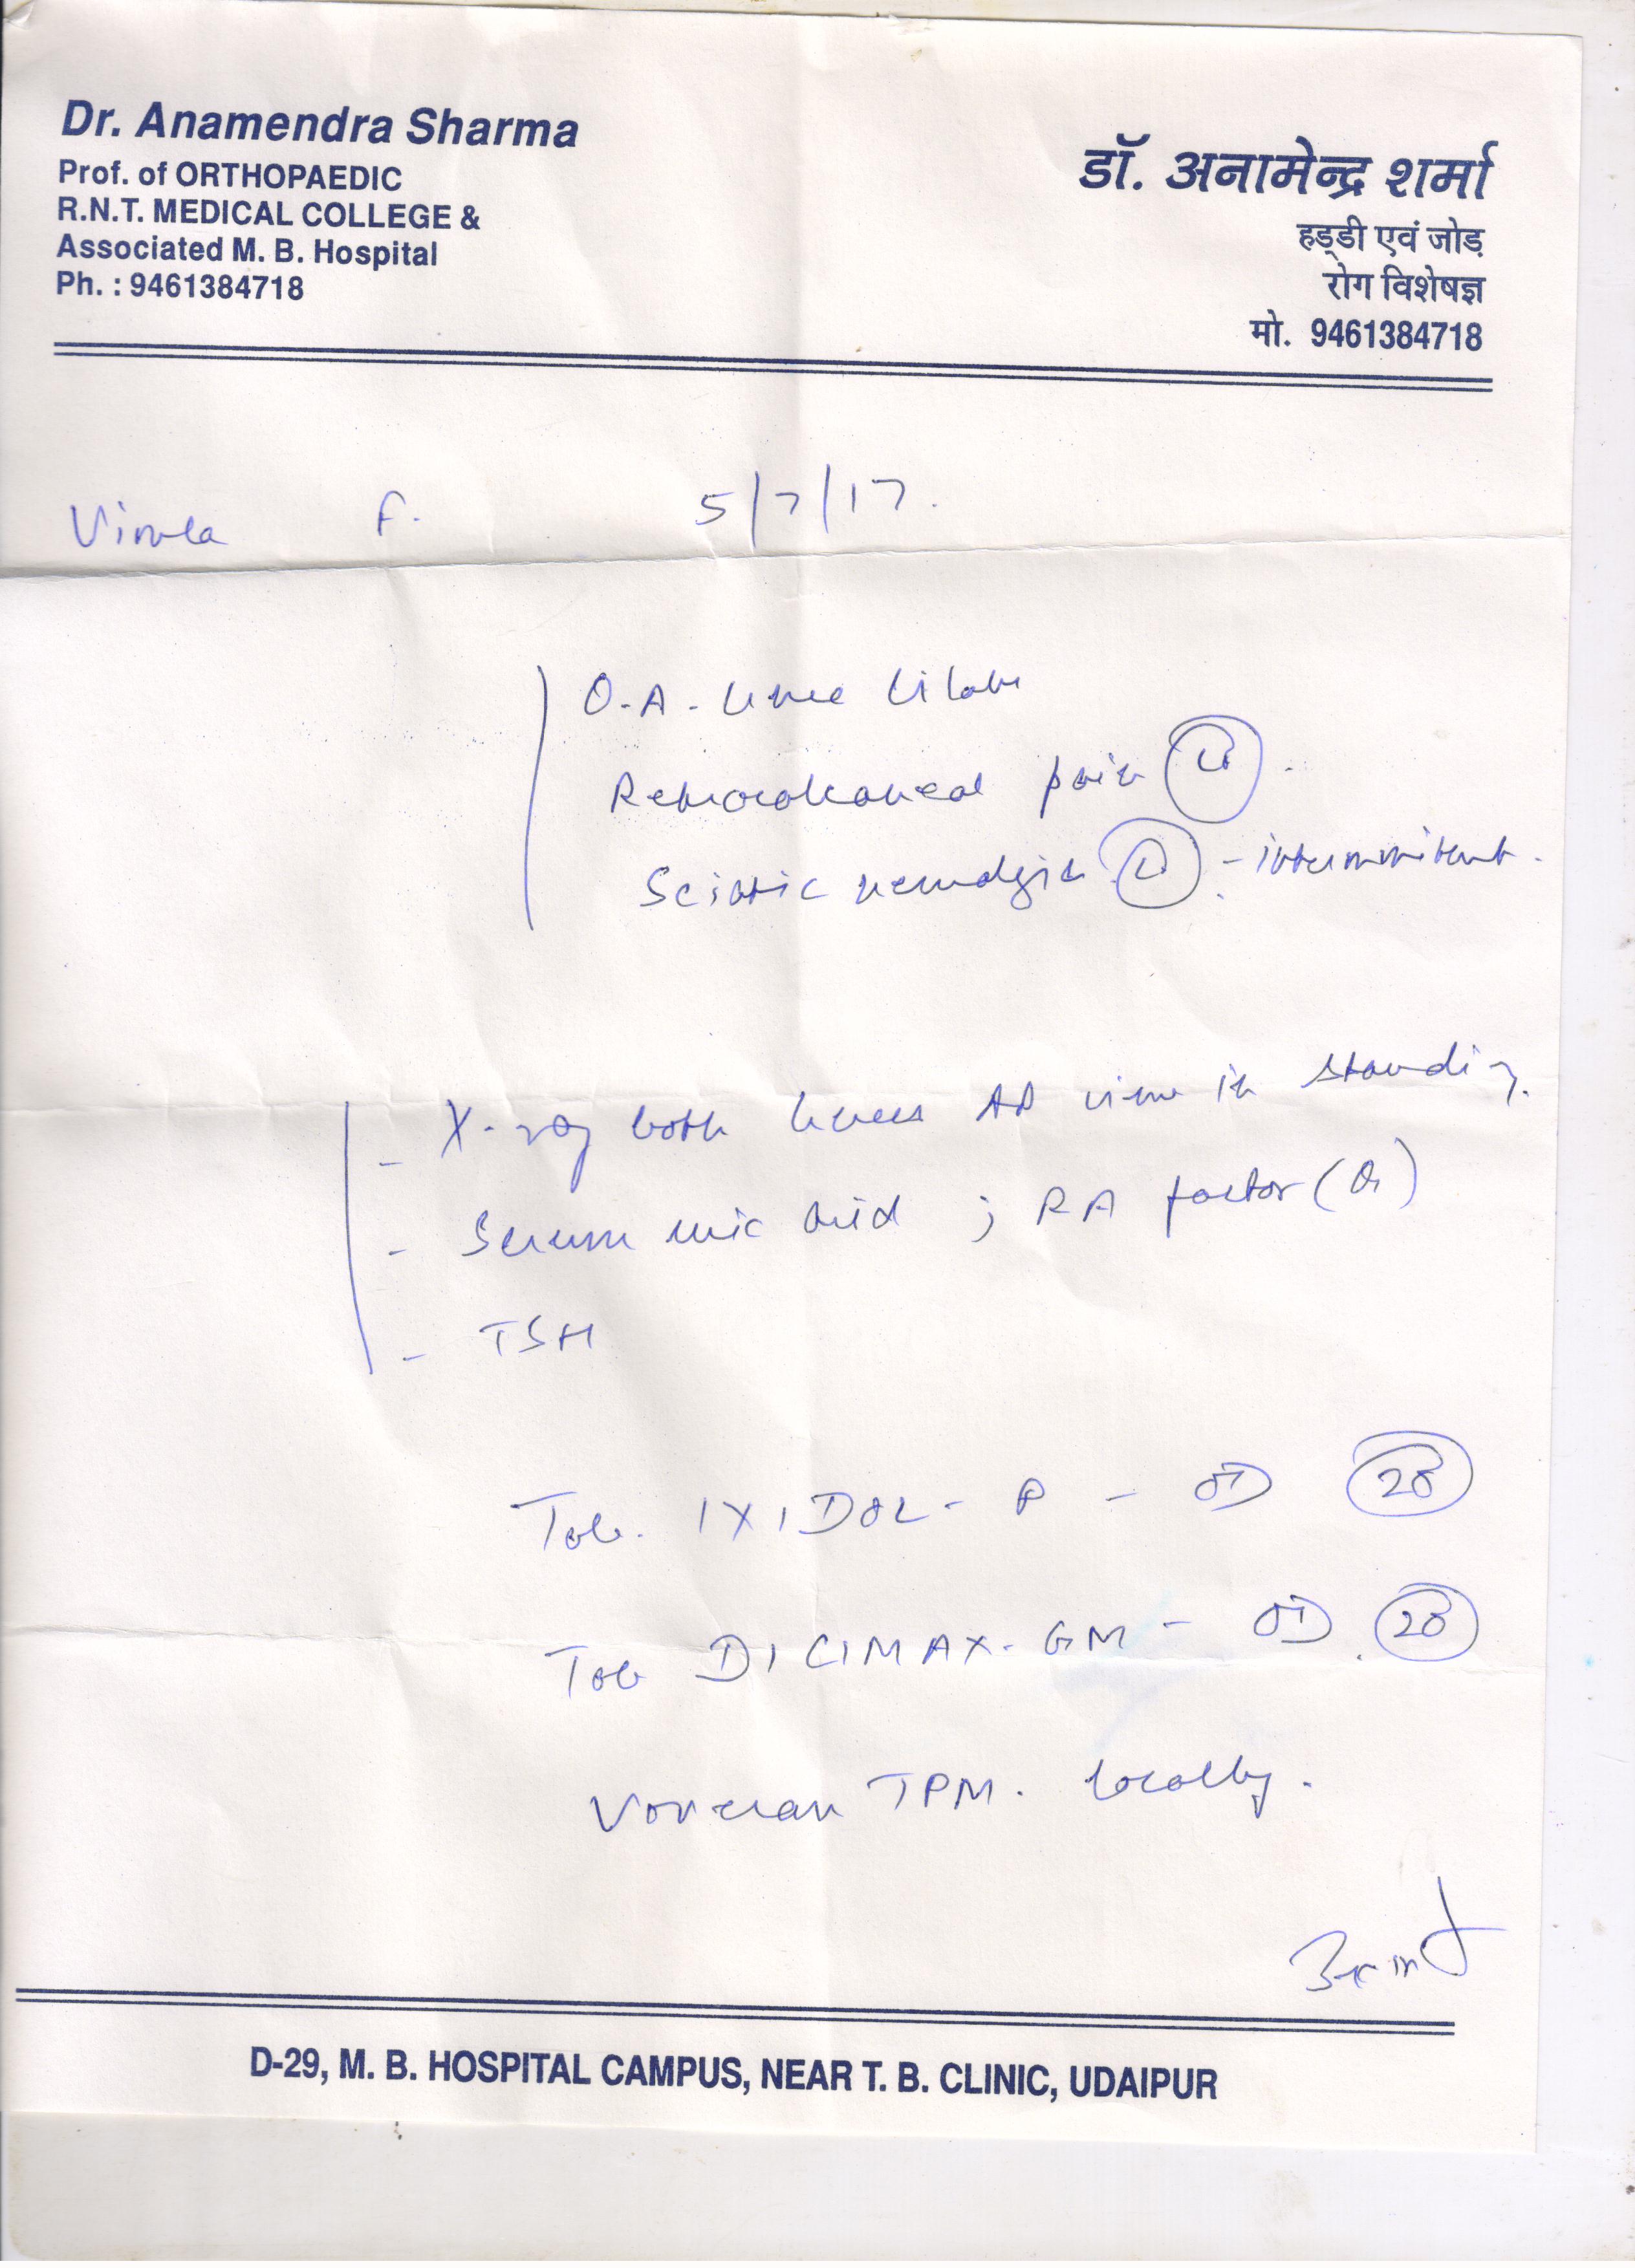 Dr. Anamendra Sharma
Prof. of ORTHOPAEDIC
R.N.T. MEDICAL COLLEGE &
Associated M. B. Hospital
Ph. : 9461384718
डॉ. अनामेन्द्र शर्मा
हड्डी एवं जोड़
रोग विशेषज्ञ
मो. 9461384718
Vimla F. 5/7/17.
O.A. knee bilate
Retrocalcaneal pain (L).
Sciatic neuralgia (L) - intermmitent.
- X-ray both knees AP view in standing.
- Serum uric acid ; RA factor
- TSH
Tab. IXIDOL - P - OD 20
Tab DICIMAX-GM - OD 20
Voveran TPM. locally.
D-29, M. B. HOSPITAL CAMPUS, NEAR T. B. CLINIC, UDAIPUR